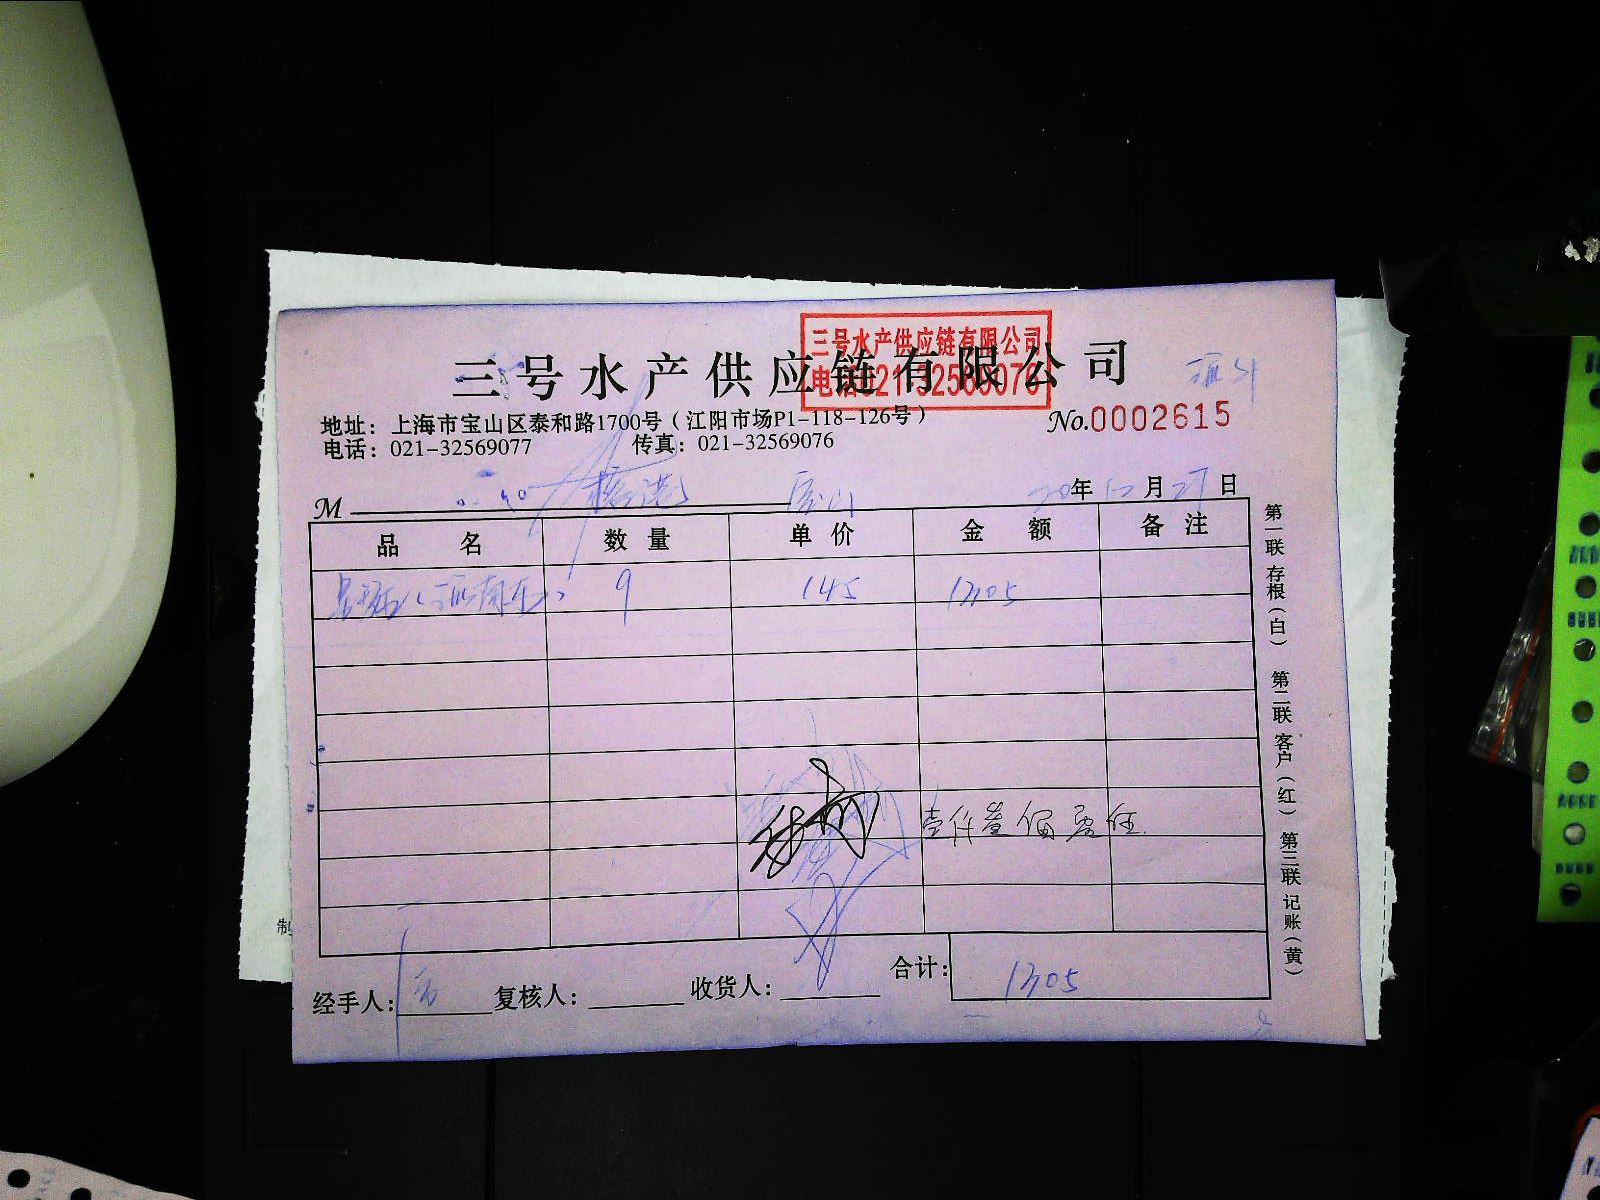 三号水产供应链有限公司
三号水产供应链有限公司
地址：上海市宝山区泰和路1700号（江阳市场P1-118-126号）
No.0002615
电话：021-32569077 传真：021-32569076
M 20年12月27日
品名 数量 单价 金额 备注
9 145 1305
壹仟叁佰零伍
合计：1305
经手人： 复核人： 收货人：
第一联 存根（白） 第二联 客户（红） 第三联 记账（黄）
制